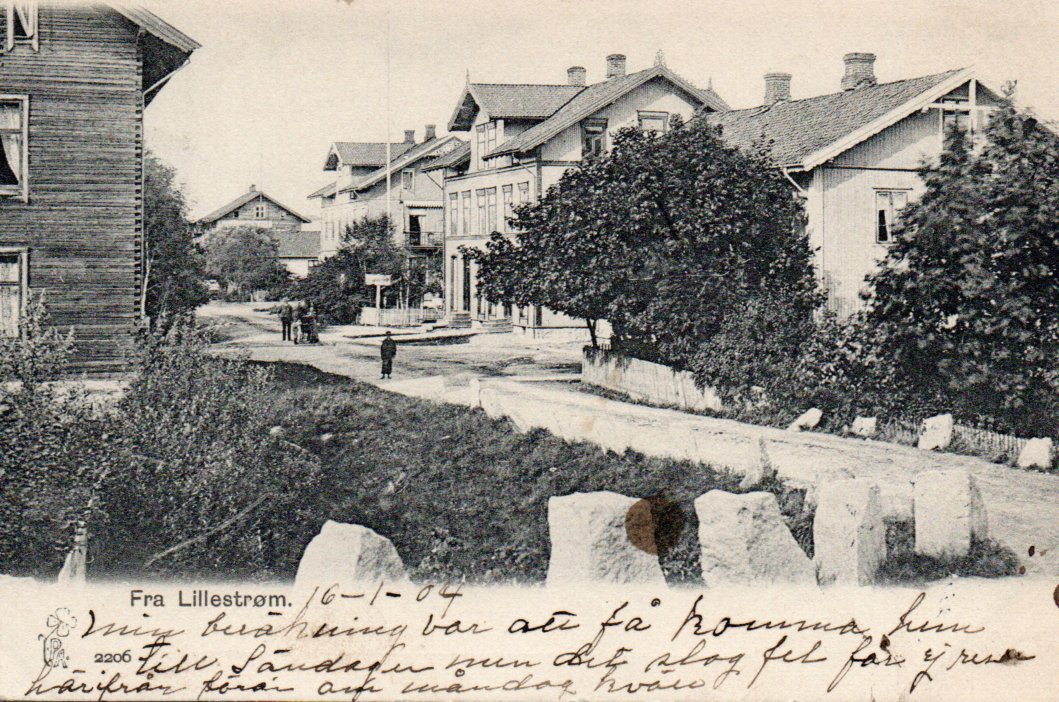 Fra Lillestrøm. 16-1-04
min beräkning var att få komma hem
2206 till Söndagen men det slog fel får ej resa
härifrån förär om måndag kväll